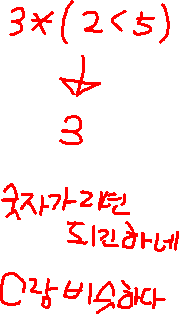 3*(2<5)
↓
3
숫자가 리턴
되긴 하네
C랑 비슷하다